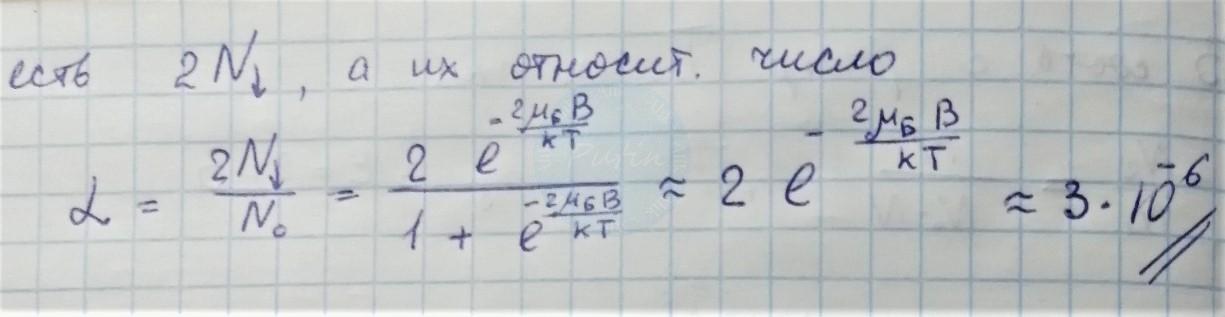 есть 2N↓, а их относит. число
α = 2N↓/N₀ = 2 e^(-2μ_Б B/кТ) / (1 + e^(-2μ_Б B/кТ)) ≈ 2 e^(-2μ_Б B/кТ) ≈ 3·10⁻⁶